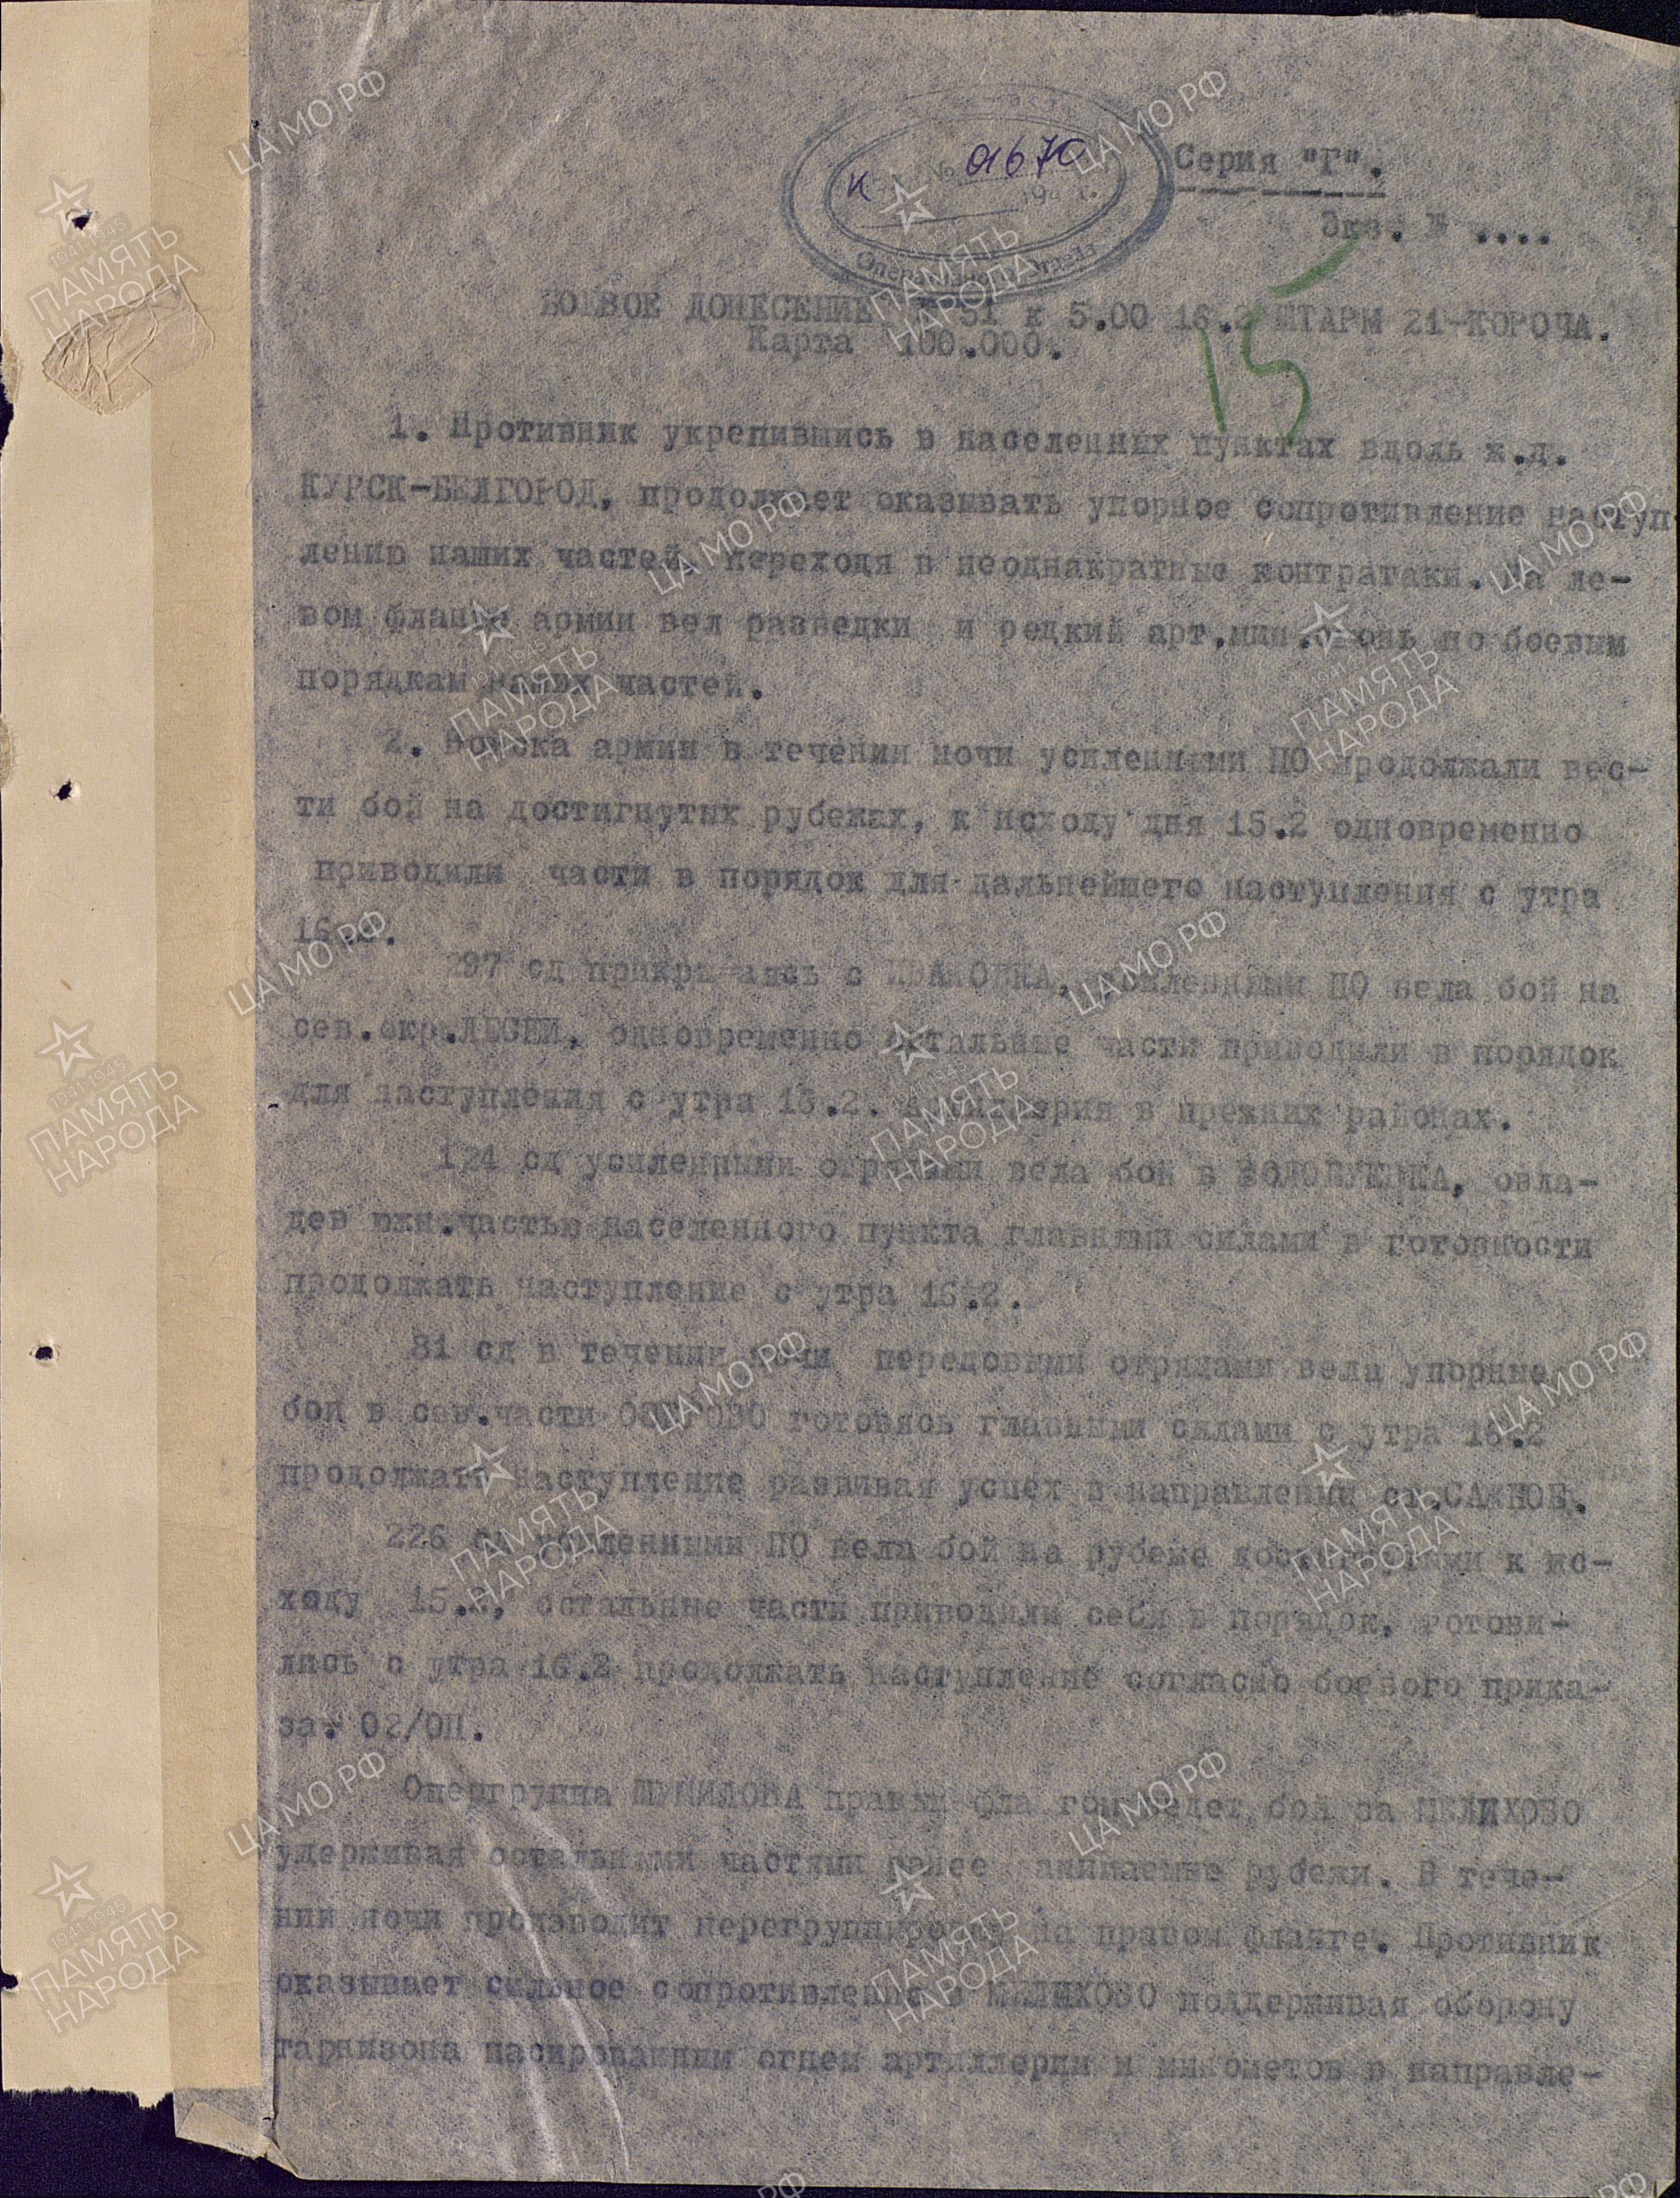 Серия "Г".
Экз. № ....
К № 01670
194 г.
БОЕВОЕ ДОНЕСЕНИЕ № 51 к 5.00 16.2 ШТАРМ 21-КОРОЧА.
Карта 100.000.
15
1. Противник укрепившись в населенных пунктах вдоль ж.д.
КУРСК-БЕЛГОРОД, продолжает оказывать упорное сопротивление наступ
лению наших частей, переходя в неоднакратные контратаки. На ле-
вом фланге армии вел разведки и редкий арт.мин.огонь по боевым
порядкам наших частей.
2. Войска армии в течении ночи усиленными ПО продолжали вес-
ти бой на достигнутых рубежах, к исходу дня 15.2 одновременно
приводили части в порядок для дальнейшего наступления с утра
16.2.
297 сд прикрываясь с ИВАНОВКА, усиленными ПО вела бой на
сев.окр.ЛЕСКИ, одновременно остальные части приводили в порядок
для наступления с утра 16.2. Артиллерия в прежних районах.
124 сд усиленными отрядами вела бой в , овла-
дев южн.частью населенного пункта главными силами в готовности
продолжать наступление с утра 16.2.
81 сд в течении ночи передовыми отрядами вела упорные
бои в сев.части готовясь главными силами с утра 16.2
продолжать наступление развивая успех в направлении ст.САЖНОЕ.
226 сд усиленными ПО вела бой на рубеже достигнутыми к ис-
ходу 15.2, остальные части приводили себя в порядок, готови-
лись с утра 16.2 продолжать наступление согласно боевого прика-
за- 02/ОП.
Опергруппа ШУМИЛОВА правым флангом ведет бой за МЕЛИХОВО
удерживая остальными частями ранее занимаемые рубежи. В тече-
нии ночи производит перегруппировку на правом фланге. Противник
оказывает сильное сопротивление в МЕЛИХОВО поддерживая оборону
гарнизона масированным огнем артиллерии и минометов в направле-
ЦА МО РФ
1941-1945
ПАМЯТЬ
НАРОДА